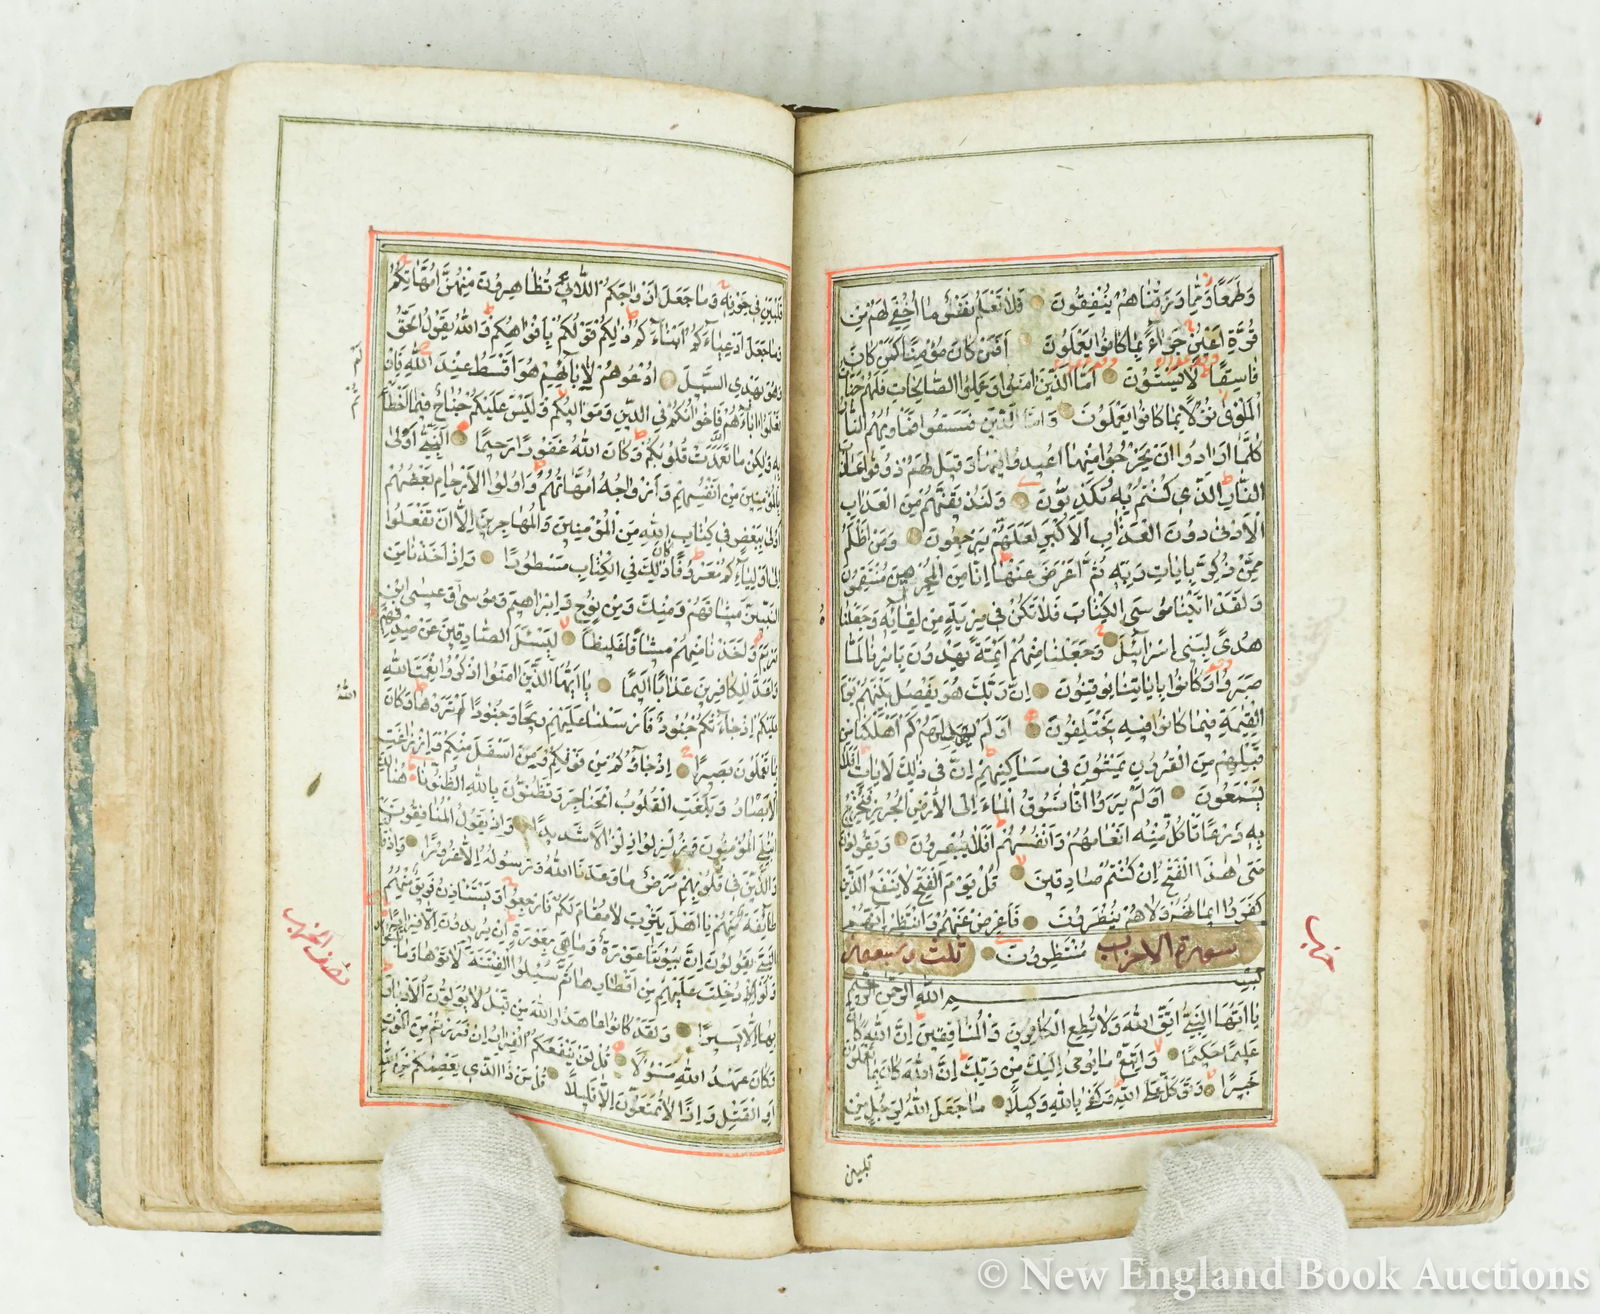 وَطَمَعًا وَمِمَّا رَزَقْنَاهُمْ يُنْفِقُونَ فَلَا تَعْلَمُ نَفْسٌ مَا أُخْفِيَ لَهُمْ مِنْ
قُرَّةِ أَعْيُنٍ جَزَاءً بِمَا كَانُوا يَعْمَلُونَ أَفَمَنْ كَانَ مُؤْمِنًا كَمَنْ كَانَ
فَاسِقًا لَا يَسْتَوُنَ أَمَّا الَّذِينَ امَنُوا وَعَمِلُوا الصَّالِحَاتِ فَلَهُمْ جَنَّاتُ
الْمَأْوَى نُزُلًا بِمَا كَانُوا يَعْمَلُونَ وَأَمَّا الَّذِينَ فَسَقُوا فَمَأْوٰيهُمُ النَّارُ
كُلَّمَا أَرَادُوا أَنْ يَخْرُجُوا مِنْهَا أُعِيدُوا فِيهَا وَقِيلَ لَهُمْ ذُوقُوا عَذَابَ
النَّارِ الَّذِي كُنْتُمْ بِهِ تُكَذِّبُونَ وَلَنُذِيقَنَّهُمْ مِنَ الْعَذَابِ
الْأَدْنَى دُونَ الْعَذَابِ الْأَكْبَرِ لَعَلَّهُمْ يَرْجِعُونَ وَمَنْ أَظْلَمُ
مِمَّنْ ذُكِّرَ بِايَاتِ رَبِّهِ ثُمَّ أَعْرَضَ عَنْهَا إِنَّا مِنَ الْمُجْرِمِينَ مُنْتَقِمُونَ
وَلَقَدْ اتَيْنَا مُوسَى الْكِتَابَ فَلَا تَكُنْ فِي مِرْيَةٍ مِنْ لِقَائِهِ وَجَعَلْنَاهُ
هُدًى لِبَنِي إِسْرَائِيلَ وَجَعَلْنَا مِنْهُمْ أَئِمَّةً يَهْدُونَ بِأَمْرِنَا لَمَّا
صَبَرُوا وَكَانُوا بِايَاتِنَا يُوقِنُونَ إِنَّ رَبَّكَ هُوَ يَفْصِلُ بَيْنَهُمْ يَوْمَ
الْقِيٰمَةِ فِيمَا كَانُوا فِيهِ يَخْتَلِفُونَ أَوَلَمْ يَهْدِ لَهُمْ كَمْ أَهْلَكْنَا مِنْ
قَبْلِهِمْ مِنَ الْقُرُونِ يَمْشُونَ فِي مَسَاكِنِهِمْ إِنَّ فِي ذٰلِكَ لَايَاتٍ أَفَلَا
يَسْمَعُونَ أَوَلَمْ يَرَوْا أَنَّا نَسُوقُ الْمَاءَ إِلَى الْأَرْضِ الْجُرُزِ فَنُخْرِجُ
بِهِ زَرْعًا تَأْكُلُ مِنْهُ أَنْعَامُهُمْ وَأَنْفُسُهُمْ أَفَلَا يُبْصِرُونَ وَيَقُولُونَ
مَتَى هٰذَا الْفَتْحُ إِنْ كُنْتُمْ صَادِقِينَ قُلْ يَوْمَ الْفَتْحِ لَا يَنْفَعُ الَّذِينَ
كَفَرُوا إِيمَانُهُمْ وَلَا هُمْ يُنْظَرُونَ فَأَعْرِضْ عَنْهُمْ وَانْتَظِرْ إِنَّهُمْ
سورة الاحزاب مُنْتَظِرُونَ ثلث وسبعون
بسم الله الرحمن الرحيم
يَا أَيُّهَا النَّبِيُّ اتَّقِ اللّٰهَ وَلَا تُطِعِ الْكَافِرِينَ وَالْمُنَافِقِينَ إِنَّ اللّٰهَ كَانَ
عَلِيمًا حَكِيمًا وَاتَّبِعْ مَا يُوحَى إِلَيْكَ مِنْ رَبِّكَ إِنَّ اللّٰهَ كَانَ بِمَا تَعْمَلُونَ
خَبِيرًا وَتَوَكَّلْ عَلَى اللّٰهِ وَكَفَى بِاللّٰهِ وَكِيلًا مَا جَعَلَ اللّٰهُ لِرَجُلٍ مِنْ
قلبين
قَلْبَيْنِ فِي جَوْفِهِ وَمَا جَعَلَ أَزْوَاجَكُمُ اللَّائِي تُظَاهِرُونَ مِنْهُنَّ أُمَّهَاتِكُمْ
وَمَا جَعَلَ أَدْعِيَاءَكُمْ أَبْنَاءَكُمْ ذٰلِكُمْ قَوْلُكُمْ بِأَفْوَاهِكُمْ وَاللّٰهُ يَقُولُ الْحَقَّ
وَهُوَ يَهْدِي السَّبِيلَ اُدْعُوهُمْ لِابَائِهِمْ هُوَ أَقْسَطُ عِنْدَ اللّٰهِ فَإِنْ لَمْ
تَعْلَمُوا ابَاءَهُمْ فَإِخْوَانُكُمْ فِي الدِّينِ وَمَوَالِيكُمْ وَلَيْسَ عَلَيْكُمْ جُنَاحٌ فِيمَا أَخْطَأْتُمْ
بِهِ وَلٰكِنْ مَا تَعَمَّدَتْ قُلُوبُكُمْ وَكَانَ اللّٰهُ غَفُورًا رَحِيمًا النَّبِيُّ أَوْلَى
بِالْمُؤْمِنِينَ مِنْ أَنْفُسِهِمْ وَأَزْوَاجُهُ أُمَّهَاتُهُمْ وَأُولُوا الْأَرْحَامِ بَعْضُهُمْ
أَوْلَى بِبَعْضٍ فِي كِتَابِ اللّٰهِ مِنَ الْمُؤْمِنِينَ وَالْمُهَاجِرِينَ إِلَّا أَنْ تَفْعَلُوا
إِلَى أَوْلِيَاءِكُمْ مَعْرُوفًا كَانَ ذٰلِكَ فِي الْكِتَابِ مَسْطُورًا وَإِذْ أَخَذْنَا مِنَ
النَّبِيِّينَ مِيثَاقَهُمْ وَمِنْكَ وَمِنْ نُوحٍ وَإِبْرَاهِيمَ وَمُوسَى وَعِيسَى ابْنِ
مَرْيَمَ وَأَخَذْنَا مِنْهُمْ مِيثَاقًا غَلِيظًا لِيَسْئَلَ الصَّادِقِينَ عَنْ صِدْقِهِمْ
وَأَعَدَّ لِلْكَافِرِينَ عَذَابًا أَلِيمًا يَا أَيُّهَا الَّذِينَ امَنُوا اذْكُرُوا نِعْمَةَ اللّٰهِ
عَلَيْكُمْ إِذْ جَاءَتْكُمْ جُنُودٌ فَأَرْسَلْنَا عَلَيْهِمْ رِيحًا وَجُنُودًا لَمْ تَرَوْهَا وَكَانَ
اللّٰهُ
بِمَا تَعْمَلُونَ بَصِيرًا إِذْ جَاؤُكُمْ مِنْ فَوْقِكُمْ وَمِنْ أَسْفَلَ مِنْكُمْ وَإِذْ زَاغَتِ
الْأَبْصَارُ وَبَلَغَتِ الْقُلُوبُ الْحَنَاجِرَ وَتَظُنُّونَ بِاللّٰهِ الظُّنُونَا هُنَالِكَ
ابْتُلِيَ الْمُؤْمِنُونَ وَزُلْزِلُوا زِلْزَالًا شَدِيدًا وَإِذْ يَقُولُ الْمُنَافِقُونَ
وَالَّذِينَ فِي قُلُوبِهِمْ مَرَضٌ مَا وَعَدَنَا اللّٰهُ وَرَسُولُهُ إِلَّا غُرُورًا وَإِذْ قَالَتْ
طَائِفَةٌ مِنْهُمْ يَا أَهْلَ يَثْرِبَ لَا مُقَامَ لَكُمْ فَارْجِعُوا وَيَسْتَأْذِنُ فَرِيقٌ مِنْهُمُ
النَّبِيَّ يَقُولُونَ إِنَّ بُيُوتَنَا عَوْرَةٌ وَمَا هِيَ بِعَوْرَةٍ إِنْ يُرِيدُونَ إِلَّا فِرَارًا
وَلَوْ دُخِلَتْ عَلَيْهِمْ مِنْ أَقْطَارِهَا ثُمَّ سُئِلُوا الْفِتْنَةَ لَاتَوْهَا وَمَا تَلَبَّثُوا
بِهَا إِلَّا يَسِيرًا وَلَقَدْ كَانُوا عَاهَدُوا اللّٰهَ مِنْ قَبْلُ لَا يُوَلُّونَ الْأَدْبَارَ
وَكَانَ عَهْدُ اللّٰهِ مَسْئُولًا قُلْ لَنْ يَنْفَعَكُمُ الْفِرَارُ إِنْ فَرَرْتُمْ مِنَ الْمَوْتِ
أَوِ الْقَتْلِ وَإِذًا لَا تُمَتَّعُونَ إِلَّا قَلِيلًا قُلْ مَنْ ذَا الَّذِي يَعْصِمُكُمْ مِنَ اللّٰهِ
نصف الحزب
© New England Book Auctions